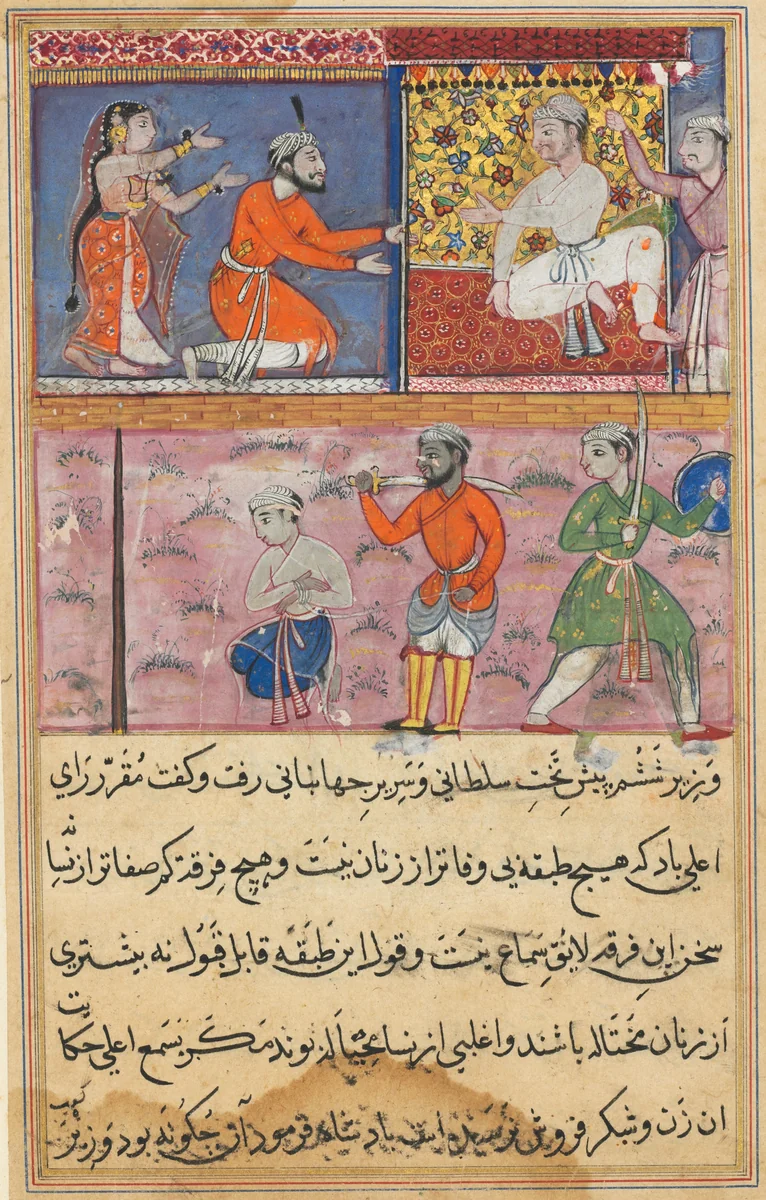 وَزِیر شَشُم پیشِ تَّختِ سلطانی وَسَرِیرِ جهابنانی رفت و کفت مُقَرّر رَاي
اعلي باد که هیچ طبقه یی وفاتر از زنان نیَستَ و هیچ فِرقه کم صفاتر از نّسِا
سخن این فرقه لایُقِ سَمَاع ینستَ و قول این طَبَقَه قابل قَبُول نه بیشتری
از زنان مُحتاله باشند و اغلبی از نسا مُحتاله بوند مکر بسَمعِ اعلی حکایت
ان زَن و شکر فروش نرسیده است بادشاه فرمود آن چکونه بود وَزِیر کفت